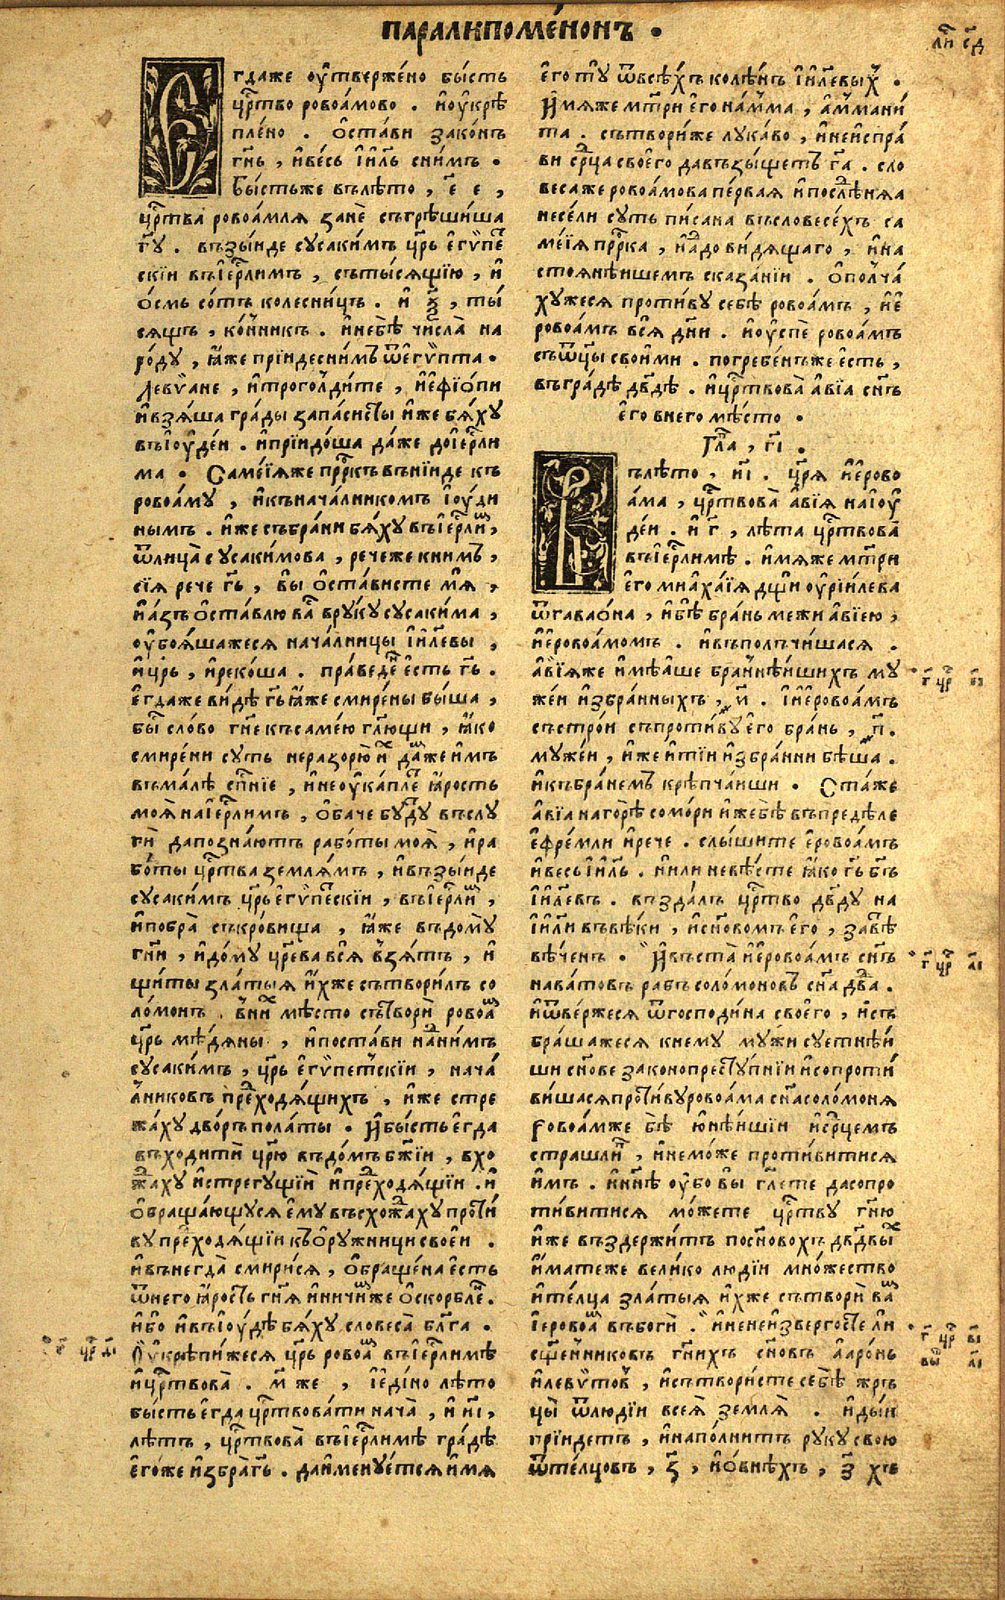 паралипоме́нонъ .
л҃и с҃д
Егдаже оу҆тверже́но бы́сть
цр҃тво ровоа́мово . и҆оу҆крѣ
пле́но . ѻ҆ста́ви зако́нъ
гн҃ь , и҆ве́сь і҆и҃ль сни́мъ .
бы́стьже въ лѣ́то , е҃ е ,
цр҃тва ровоа́мля занѐ съгрѣши́ша
гу҃ . възы́иде сусаки́мъ цр҃ь е҆гѵ́пе
скїи въ і҆ер҃ли́мъ , съты́сящїю , и҆
о́смь со́тъ колесни́цъ . и҆ ѯ҃ , ты́
сящъ , ко́нникъ . и҆небѣ̀ числа̀ на
ро́ду , ꙗ҆́же прїи́де сни́мъ ѿе҆гѵ́пта .
леѵѵ́ане , и҆трогол́дите , и҆е҆фїо́пи
и҆взя́ша гра́ды запа́сныя и҆́же бя́ху
въ і҆оу҆де́и . и҆прїидо́ша да́же доі҆ер҃ли
ма . Саме́їяже прр҃къ въни́иде къ
ровоа́му , и҆къ нача́лникомъ і҆оу́ди
нымъ . и҆́же събра́ни бя́ху въ і҆ер҃ли ,
ѿлица̀ сусаки́мова , речеже кни́мъ ,
сїя́ рече гь҃ , вы̀ ѻ҆ста́висте мя̀ ,
и҆а́зъ ѻ҆ста́влю ва въ ру́ку сусаки́ма ,
оу҆боя́шажеся нача́лницы і҆и҃левы ,
и҆цр҃ь , и҆реко́ша . пра́веденъ е҆́сть гь҃ .
е҆гда́же ви́дѣ гь҃ ꙗ҆́же смире́ны бы́ша ,
бы́ сло́во гн҃е къ саме́ю гл҃ющи , ꙗ҆́ко
смире́ни суть неразорю̀ и҆ да́мже и҆́мъ
въ ма́лѣ сп҃нїе , и҆неоу҆ка́плетъ ꙗ҆́рость
моя̀ на і҆ер҃ли́мъ , ѻ҆ба́че бу́ду въслу
гѝ да позна́ютъ рабо́ты моя̀ , и҆ра
бо́ты цр҃тва земля́мъ , и҆възы́иде
сусаки́мъ цр҃ь е҆гѵ́петскїи , въ і҆ер҃ли ,
и҆побра̀ съкро́вища , ꙗ҆́же въ дому̀
гн҃и , и҆до́му цр҃ева вся̀ взя́тъ , и҆
щиты̀ златы́я и҆́хже сътвори́лъ со
ломо́нъ . вни́хъ мѣ́сто сътворѝ ровоа
цр҃ь мѣ́дяны , и҆поста́ви на́нимъ
сусаки́мъ , цр҃ь е҆гѵ́петскїи , нача́
лниковъ предходя́щихъ , и҆́же стре
жа́ху дво́ръ пола́ты . И҆ бы́сть е҆гда
въходи́ти цр҃ю въ до́мъ бж҃їи , вхо
жа́ху и҆стрегу́щїи и҆предходя́щїи . и҆
ѻ҆браща́ющуся е҆му въсхожа́ху проти́
ву предходя́щїи къ ѻ҆ружници свое́и .
и҆вънегда̀ смири́ся , ѻ҆браще́на е҆́сть
ѿнего ꙗ҆́рость гн҃я и҆ничи́мже ѻ҆скорбле́ .
и҆́бо и҆въ і҆оу́дѣ бя́ху словеса̀ бл҃га .
Оу҆крѣпи́жеся цр҃ь ровоа въ і҆ер҃ли́мѣ
и҆цр҃твова̀ . м҃ же , и҆е҆ди́но лѣ́то
бы́сть е҆гда цр҃твова́ти нача̀ , и҆ з҃і ,
лѣ́тъ , цр҃твова̀ въ і҆ер҃ли́мѣ гра́дѣ
е҆го́же и҆збра̀ гь҃ . да и҆мену́ется и҆́мя
е҆го ту ѿвсѣ́хъ колѣ́нъ і҆и҃левых .
И҆́мяже мт҃ри е҆го наа́ма , а҆ммани́
та . сътвори́же лука́во , и҆неи҆спра́
ви ср҃ца своего̀ да възы́щетъ га҃ . сло
веса́же ровоа́мова пе́рвая и҆после́дняя
несе́ли суть пи́сана въ словесе́хъ са
ме́їя прр҃ка , и҆а҆до ви́дящаго , и҆на
стоя́нѣишемъ сказа́нїи . ѻ҆полча́
хужеся проти́ву себѣ̀ ровоа́мъ , и҆е҆
ровоа́мъ вся̀ дн҃и . и҆оу҆спѐ ровоа́мъ
съ ѿц҃ы свои́ми . погребе́нъже е҆́сть ,
въ гра́дѣ дв҃дѣ . и҆цр҃твова̀ а҆ві́а сн҃ъ
е҆го̀ внего̀ мѣ́сто .
Гла , г҃і .
Въ лѣ́то , и҃і . цр҃я и҆е҆рово
а́ма , цр҃твова̀ а҆ві́я на і҆оу҆
де́и . и҆ г҃ , лѣ́та цр҃твова
въ і҆ер҃ли́мѣ . и҆́мяже мт҃ри
е҆го миаха́їя дщи оу҆рїи́лева
ѿгаваѻ́на , и҆бѣ̀ бра́нь межи а҆ві́ею ,
и҆е҆ровоа́момъ . и҆въполчи́шася .
а҆ві́яже и҆мѣ́аше бра́ннѣишихъ му
же́и и҆збра́нныхъ , у҃ . і҆и҆е҆ровоа́мъ
състро́и съпроти́ву е҆го̀ бра́нь , п҃ .
муже́и , и҆́же и҆ тїи́ и҆збра́нни бѣ́ша .
и҆къ бра́немъ крѣпча́иши . Ста́же
а҆ві́а на горѣ̀ сомо́ри и҆́же бѣ̀ въ предѣ́ле
е҆фре́мли и҆рече . слы́шите е҆ровоа́мъ
и҆ве́сь і҆и҃ль . и҆ли невѣ́сте ꙗ҆́ко гь҃ бг҃ъ
і҆и҃левъ . възда́лъ цр҃тво дв҃ду на
і҆и҃ли въ вѣ́ки , и҆сн҃овомъ е҆го̀ , завѣ́
вѣ́ченъ . И҆ въста̀ и҆е҆ровоа́мъ сн҃ъ
нава́товъ ра́бъ соломо́новъ сн҃а дв҃да .
и҆ѿве́ржеся ѿгосподи́на своего̀ , и҆съ
бра́шажеся кнему̀ мужи суе́тнѣи
ши сн҃ове законопресту́пнїи и҆сопроти́
вишася проти́ву ровоа́ма сн҃а соломо́ня
ровоа́мже бѣ̀ ю҆нѣ́ишїи и҆ср҃цемъ
страшли́въ , и҆немо́же проти́витися
и҆́мъ . и҆ны́нѣ оу҆бо вы̀ гл҃ете да сопро
ти́витися мо́жете цр҃тву гн҃ю
и҆́же въздержи́тъ посн҃овохъ дв҃довы
и҆́матеже вели́ко лю́дїи мно́жество
и҆телца̀ златы́я и҆́хже сътворѝ ва
і҆еровоа въ бо́ги . и҆неи҆зверго́сте ли
сщ҃е́нниковъ гн҃ихъ сн҃овъ а҆аро́нь
и҆леѵѵ́товъ , и҆сътвори́сте себѣ̀ жръ
цы̀ ѿлюдїи всея̀ земля̀ . и҆ды́и
прїи́детъ , и҆напо́лнитъ ру́ку свою
ѿте́лцовъ , з҃ , и҆ѻ҆внѣ́хъ , з҃ хъ